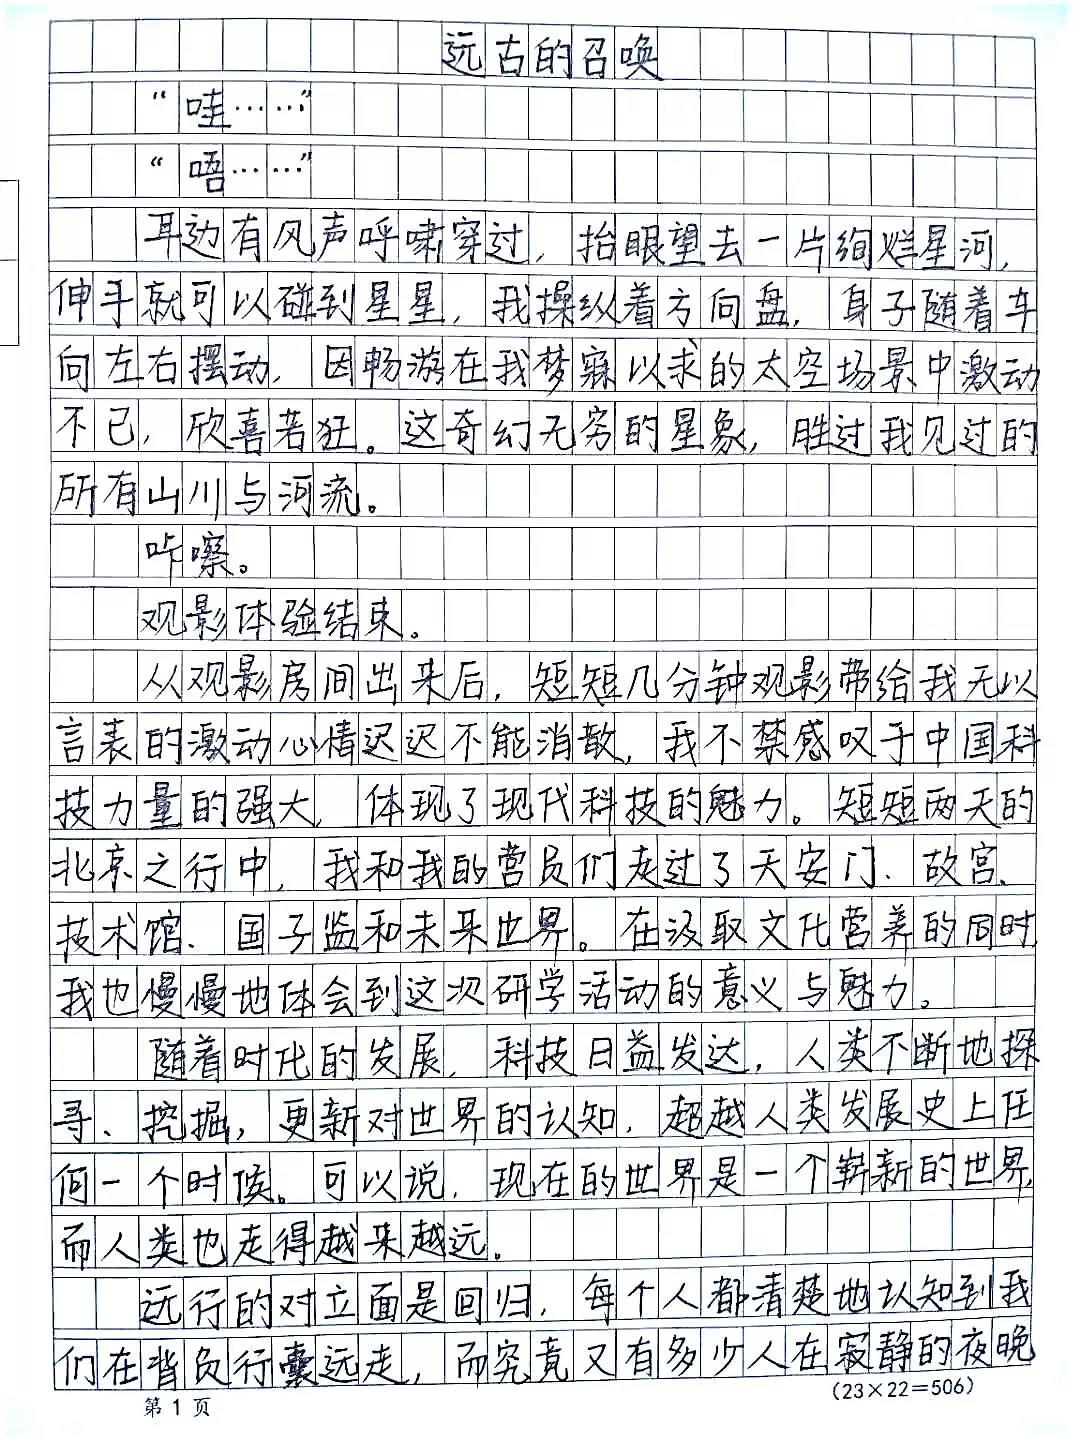 远古的召唤
“哇……”
“唔……”
耳边有风声呼啸穿过，抬眼望去一片绚烂星河，
伸手就可以碰到星星，我操纵着方向盘，身子随着车
向左右摆动，因畅游在我梦寐以求的太空场景中激动
不已，欣喜若狂。这奇幻无穷的星象，胜过我见过的
所有山川与河流。
咔嚓。
观影体验结束。
从观影房间出来后，短短几分钟观影带给我无以
言表的激动心情迟迟不能消散，我不禁感叹于中国科
技力量的强大，体现了现代科技的魅力。短短两天的
北京之行中，我和我的营员们走过了天安门、故宫、
技术馆、国子监和未来世界。在汲取文化营养的同时，
我也慢慢地体会到这次研学活动的意义与魅力。
随着时代的发展，科技日益发达，人类不断地探
寻、挖掘，更新对世界的认知，超越人类发展史上任
何一个时候。可以说，现在的世界是一个崭新的世界，
而人类也走得越来越远。
远行的对立面是回归，每个人都清楚地认知到我
们在背负行囊远走，而究竟又有多少人在寂静的夜晚
第1页
(23×22=506)